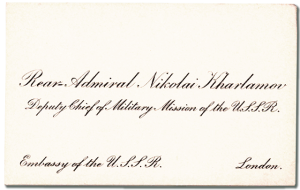 Rear-Admiral Nikolai Kharlamov
Deputy Chief of Military Mission of the U.S.S.R.
Embassy of the U.S.S.R.
London.